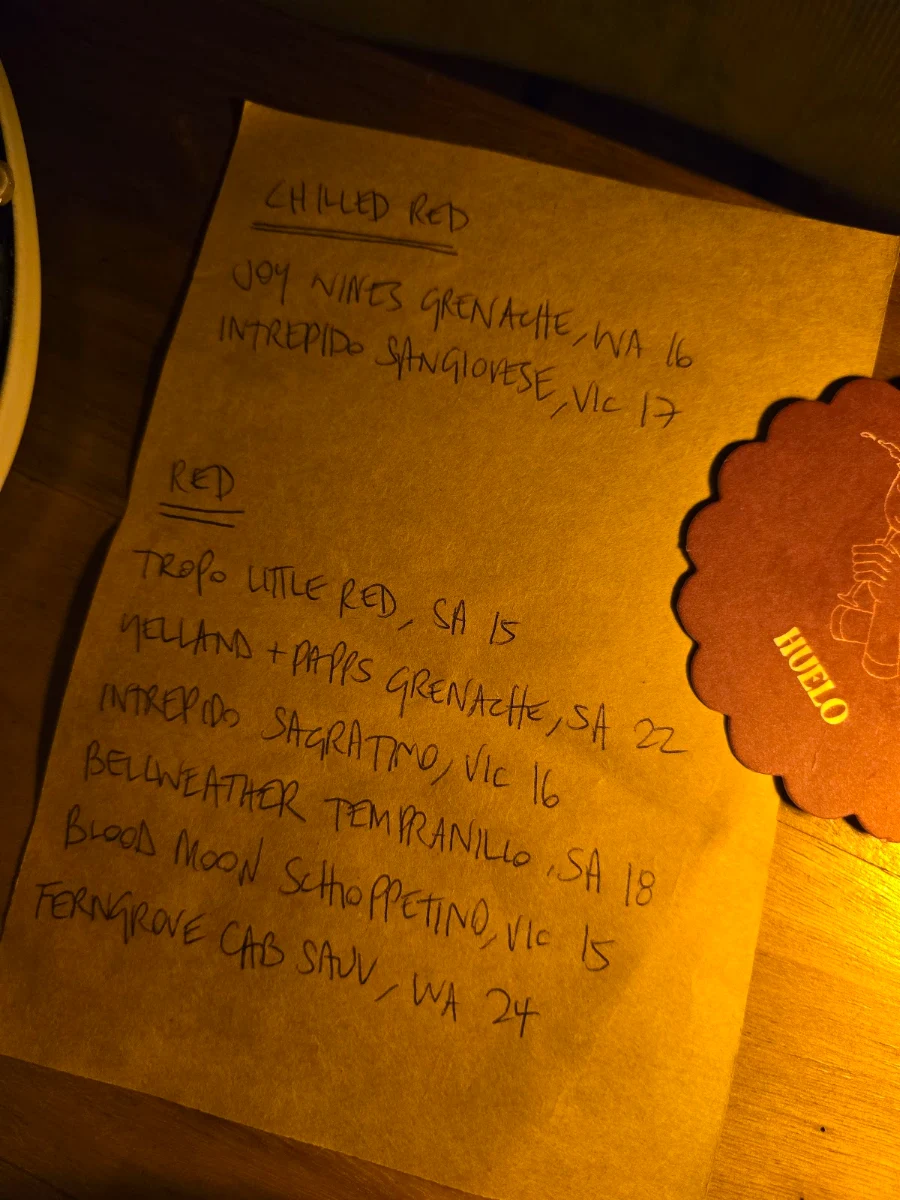 CHILLED RED
JOY WINES GRENACHE, WA 16
INTREPIDO SANGIOVESE, VIC 17
RED
TROPO LITTLE RED, SA 15
YELLAND + PAPPS GRENACHE, SA 22
INTREPIDO SAGRATINO, VIC 16
BELLWEATHER TEMPRANILLO, SA 18
BLOOD MOON SCHIOPPETINO, VIC 15
FERNGROVE CAB SAUV, WA 24
HUELO